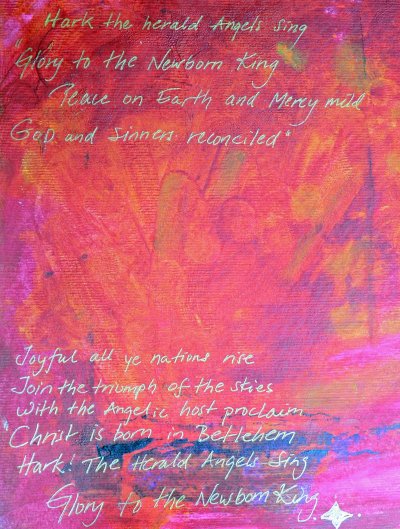 Hark the herald Angels sing
"Glory to the Newborn King
Peace on Earth and Mercy mild
God and Sinners reconciled"
Joyful all ye nations rise
Join the triumph of the skies
With the Angelic host proclaim
Christ is born in Betlehem
Hark! The Herald Angels Sing
Glory to the Newborn King.